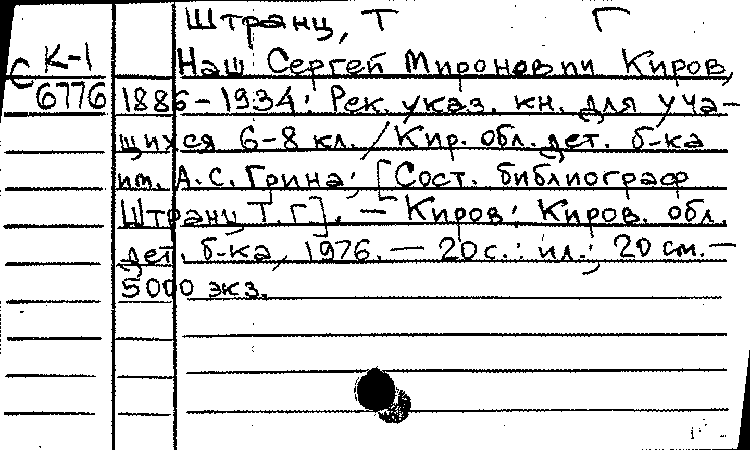 Штранц, Т Г
К-1
С 6776
Наш Сергей Миронович Киров,
1886-1934: Рек. указ. кн. для уча-
щихся 6-8 кл. / Кир. обл. дет. б-ка
им. А.С. Грина; [Сост. библиограф
Штранц Т.Г.]. — Киров: Киров. обл.
дет. б-ка, 1976. — 20 с.: ил.; 20 см. —
5000 экз.